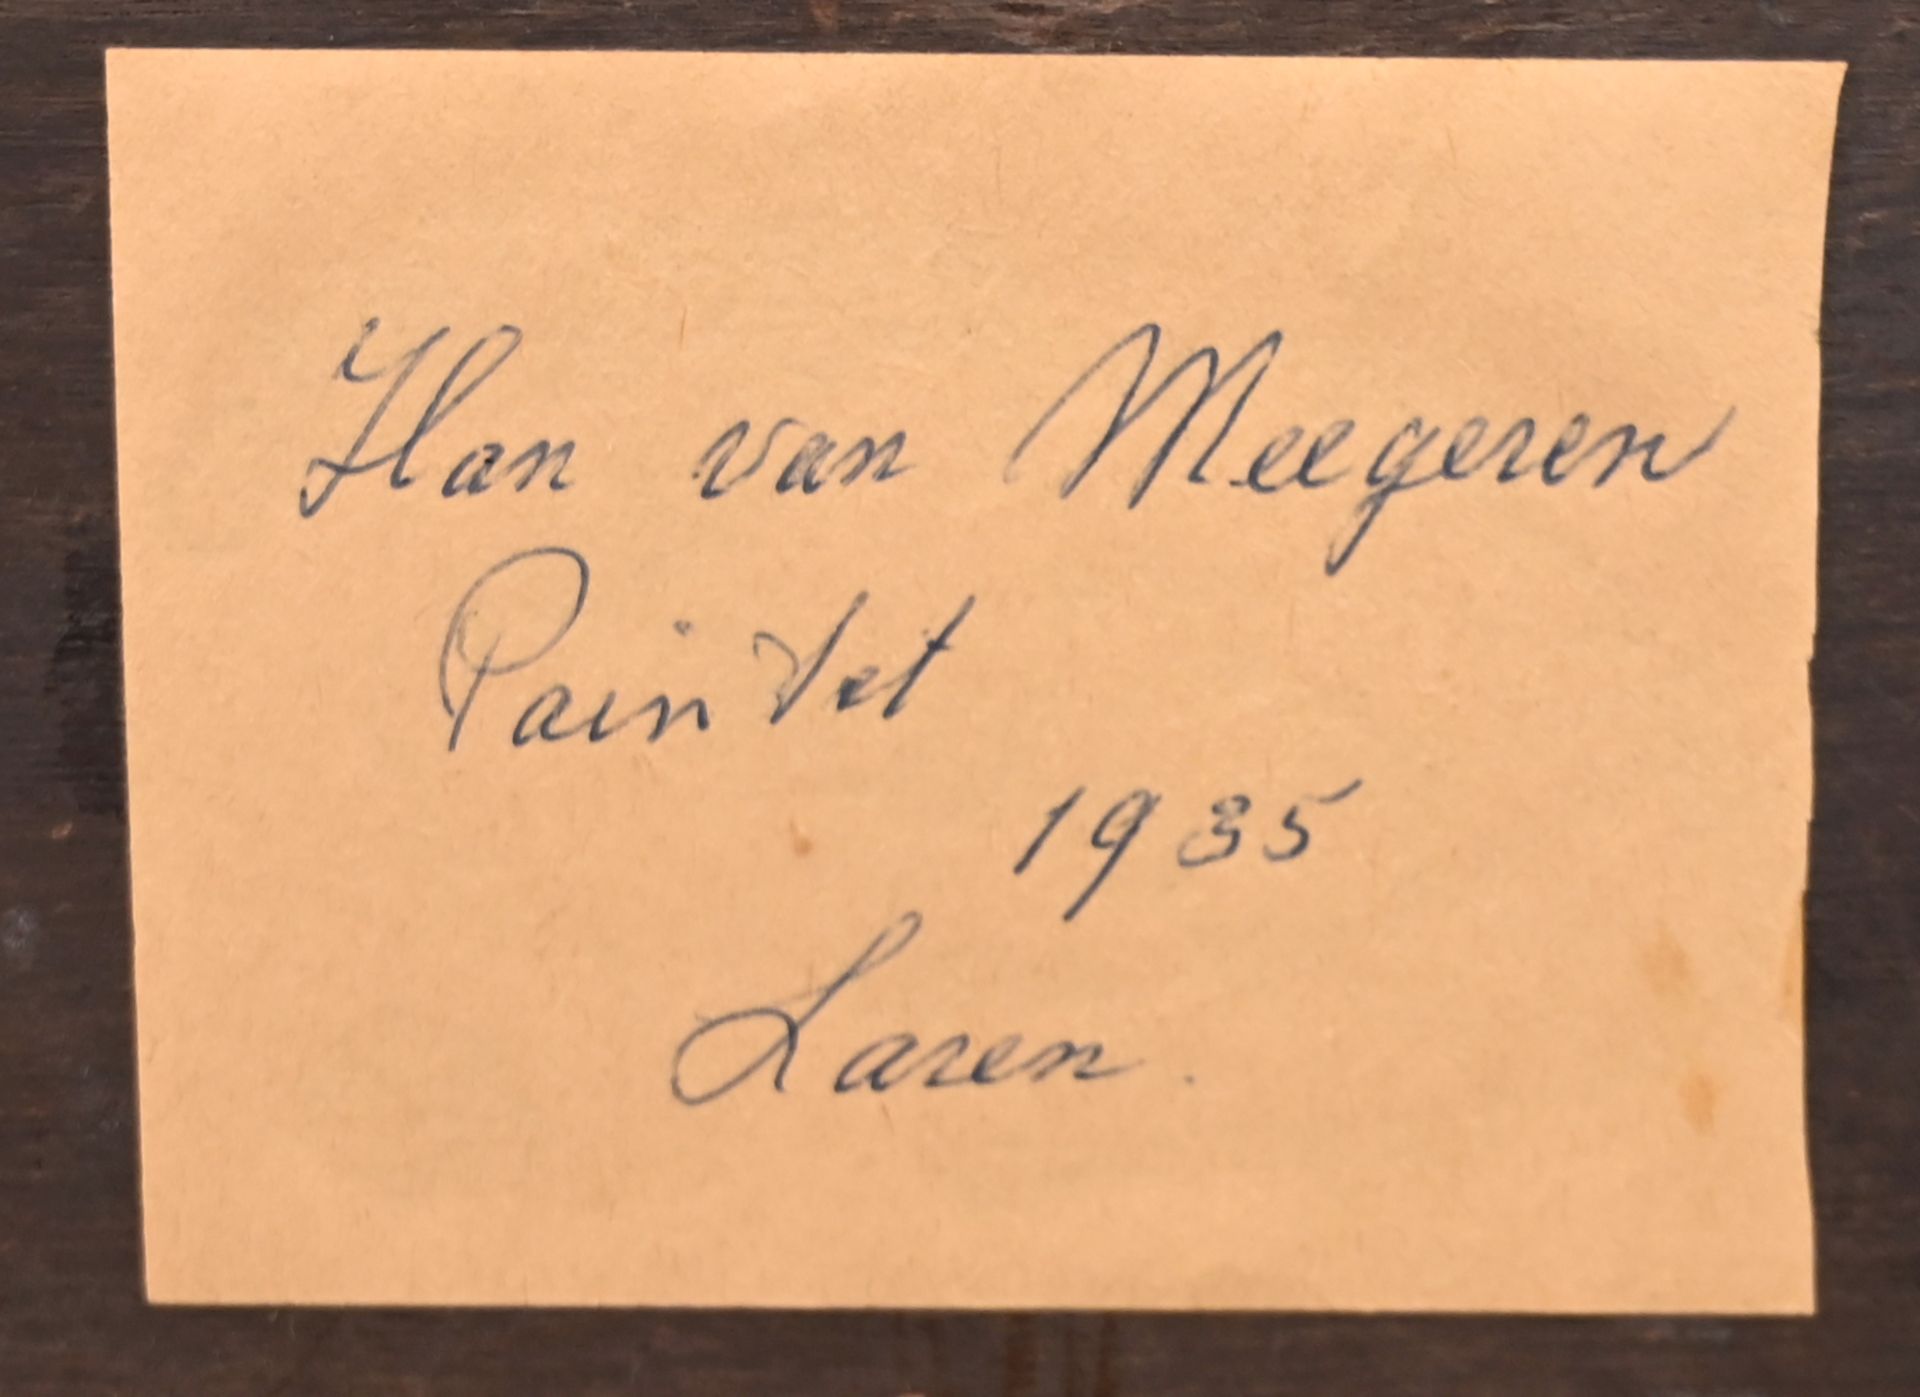 Han van Meegeren
Paintet
1935
Laren.